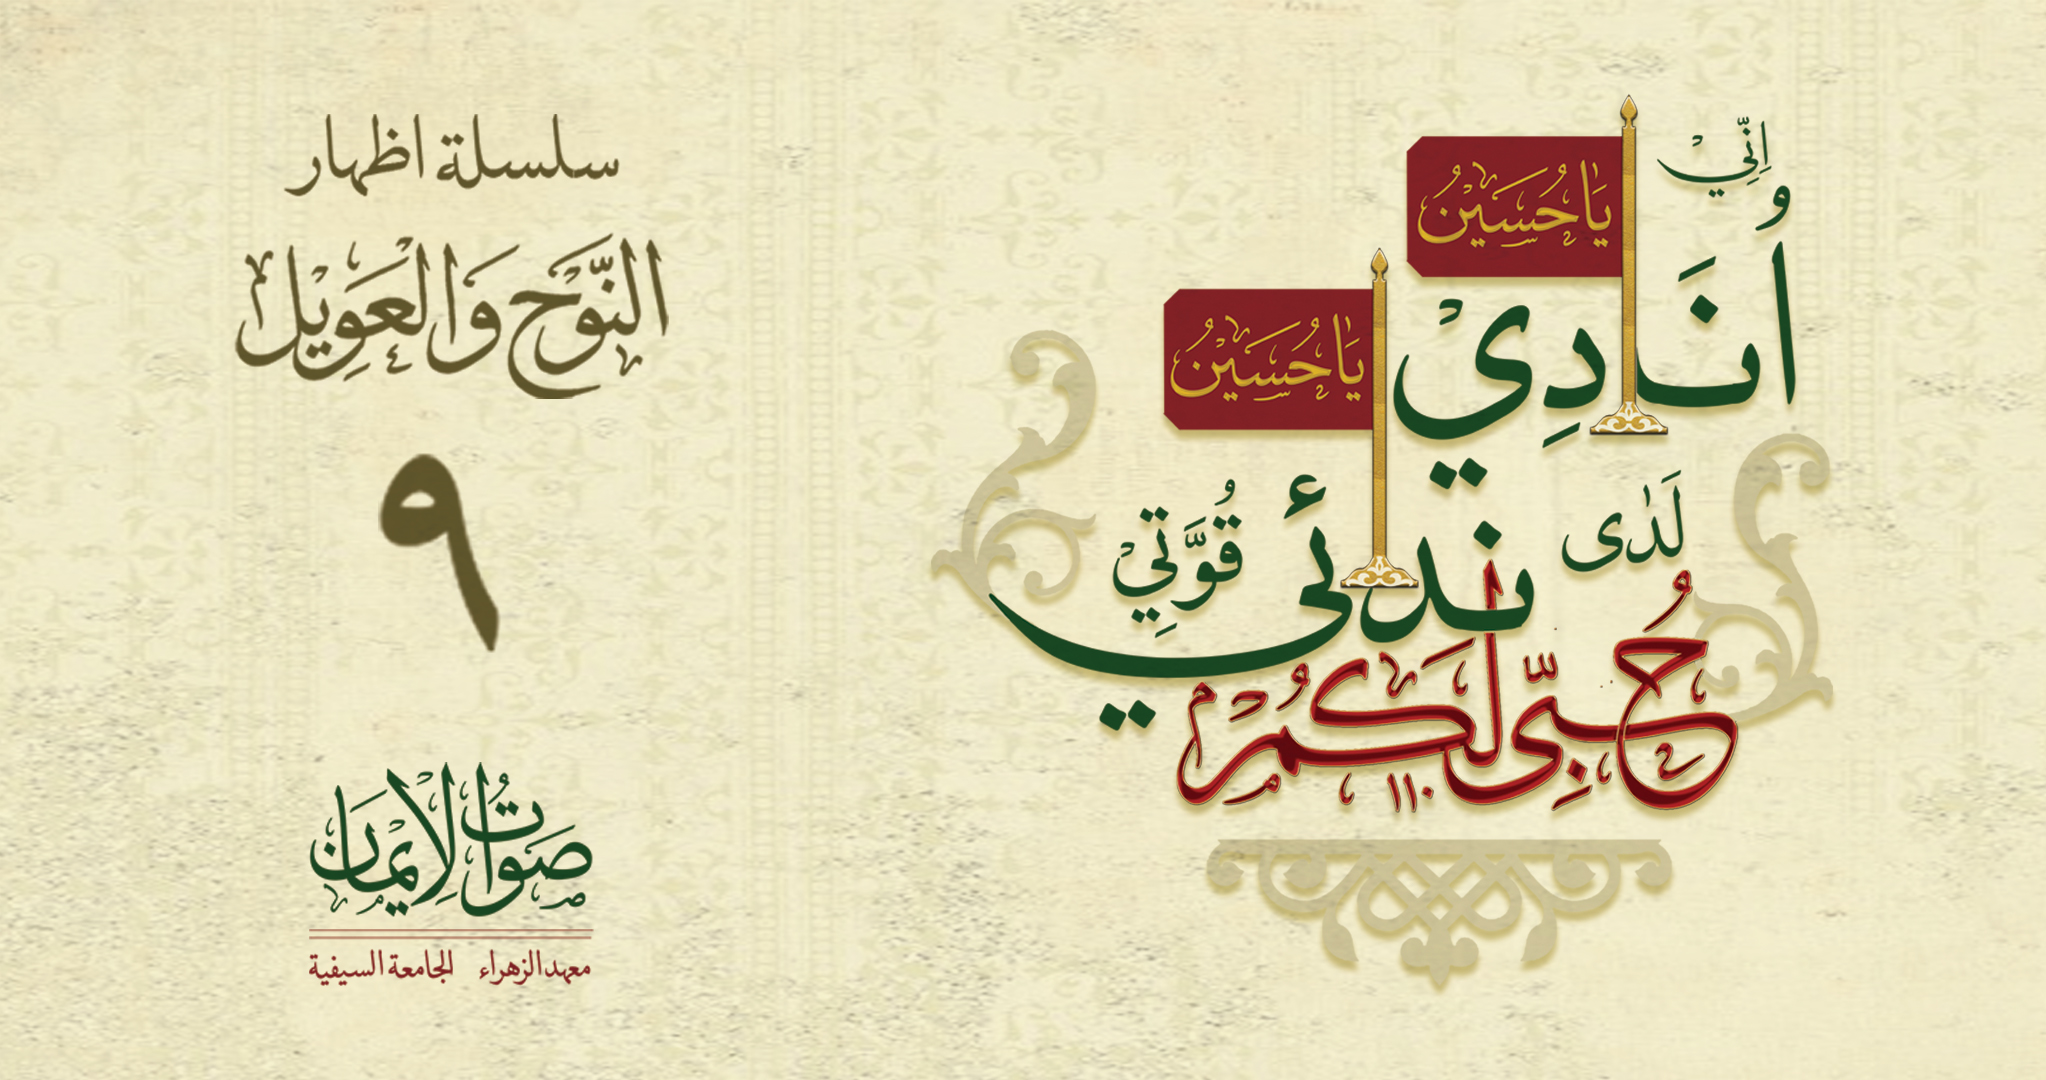 اِنِّيْ
و
اُنَادِيْ
يَاحُسَيْنُ
يَاحُسَيْنُ
لَدٰى نِدَئي قُوَّتِيْ
حُبِّى لَكُمُوْ
١١٠
سلسلة اظهار
النَّوْحِ وَالْعَوِيْلِ
٩
صَوْتُ الْاِيْمَان
معهد الزهراء الجامعة السيفية